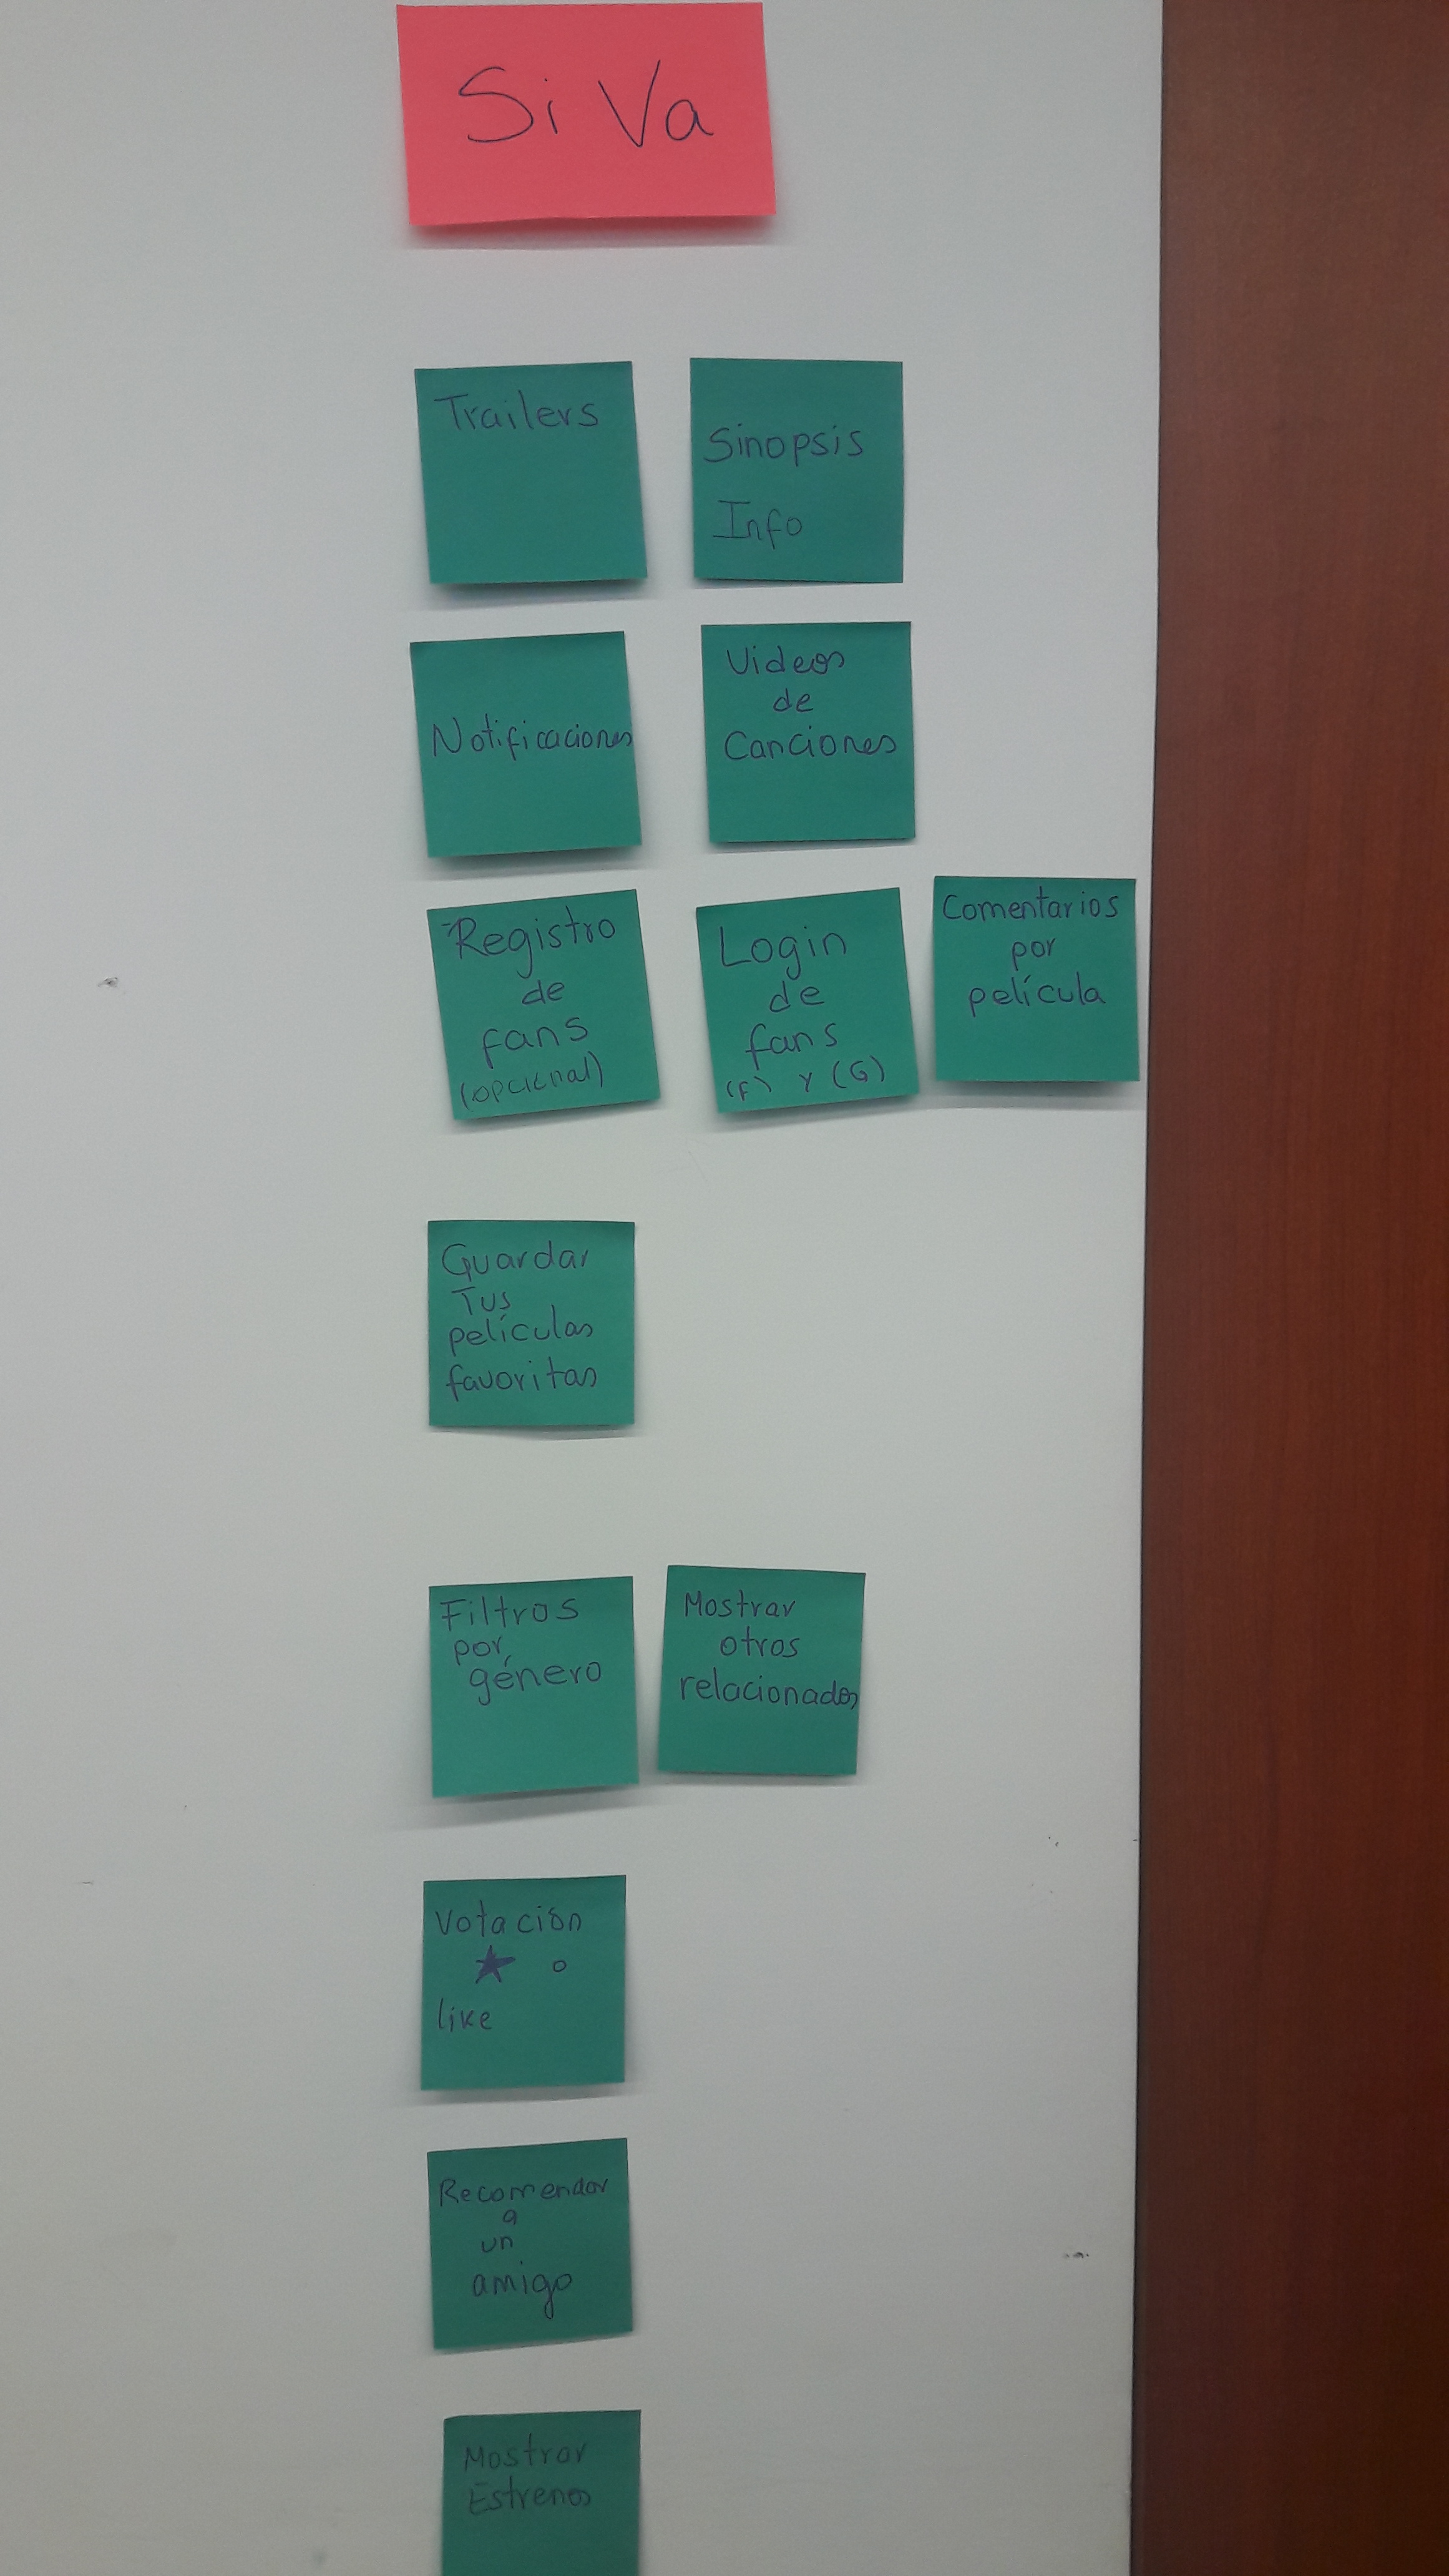 Si Va
Trailers
Sinopsis
Info
Notificaciones
Videos
de
Canciones
Registro
de
fans
(opcional)
Login
de
fans
(F) y (G)
Comentarios
por
película
Guardar
Tus
películas
favoritas
Filtros
por
género
Mostrar
otros
relacionados
Votación
★ o
like
Recomendar
a
un
amigo
Mostrar
Estrenos